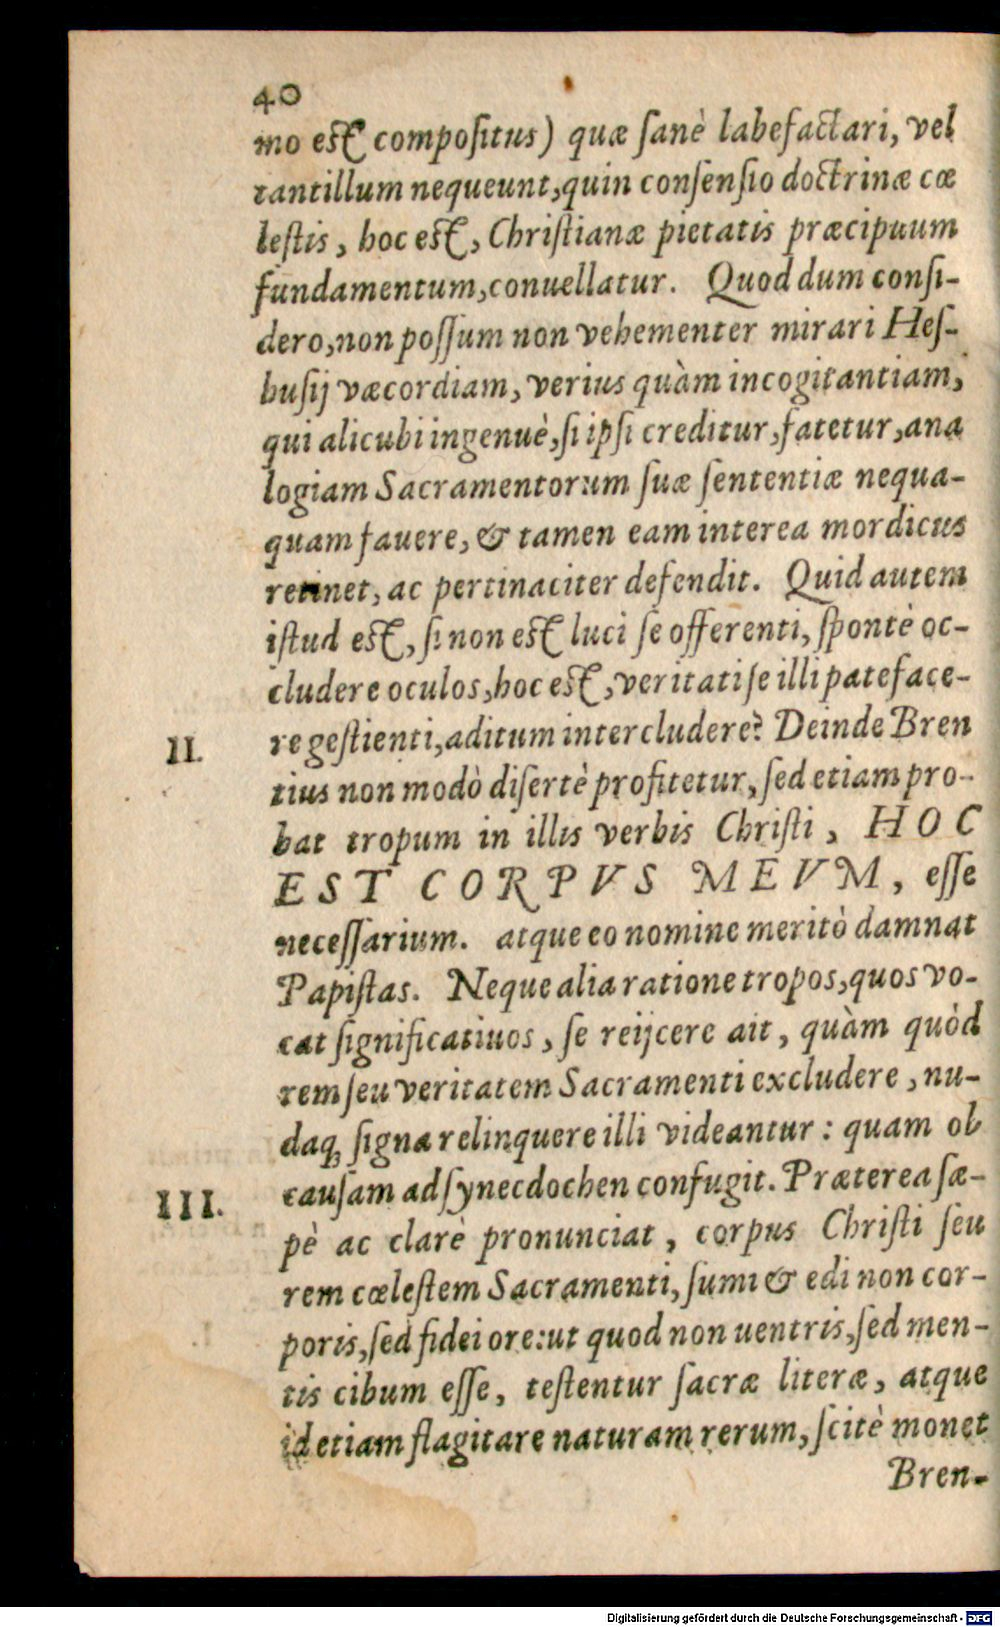 40
mo est compositus) quæ sanè labefactari, vel
tantillum nequeunt, quin consensio doctrinæ cœ
lestis, hoc est, Christianæ pietatis præcipuum
fundamentum, conuellatur. Quod dum consi-
dero, non possum non vehementer mirari Hes-
husij væcordiam, verius quàm incogitantiam,
qui alicubi ingenuè, si ipsi creditur, fatetur, ana
logiam Sacramentorum suæ sententiæ nequa-
quam fauere, & tamen eam interea mordicus
retinet, ac pertinaciter defendit. Quid autem
istud est, si non est luci se offerenti, spontè oc-
cludere oculos, hoc est, veritati se illi pateface-
II. re gestienti, aditum intercludere? Deinde Bren
tius non modò disertè profitetur, sed etiam pro-
bat tropum in illis verbis Christi, HOC
EST CORPVS MEVM, esse
necessarium. atque eo nomine meritò damnat
Papistas. Neque alia ratione tropos, quos vo-
cat significatiuos, se reijcere ait, quàm quòd
rem seu veritatem Sacramenti excludere, nu-
daq; signa relinquere illi videantur: quam ob
III. causam ad synecdochen confugit. Præterea sæ-
pè ac clarè pronunciat, corpus Christi seu
rem cœlestem Sacramenti, sumi & edi non cor-
poris, sed fidei ore: ut quod non uentris, sed men-
tis cibum esse, testentur sacræ literæ, atque
id etiam flagitare naturam rerum, scitè monet
Bren-
Digitalisierung gefördert durch die Deutsche Forschungsgemeinschaft - DFG